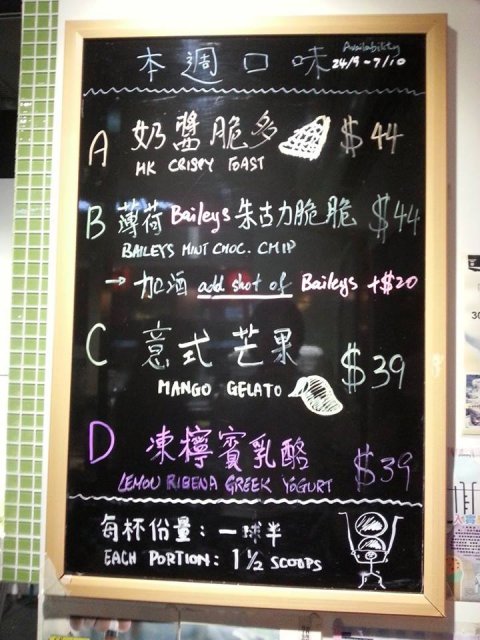 本週口味
Availability
24/9-7/10
A 奶醬脆多 $44
HK CRISPY TOAST
B 薄荷Baileys朱古力脆脆 $44
BAILEYS MINT CHOC. CHIP
→ 加酒 add shot of Baileys +$20
C 意式芒果 $39
MANGO GELATO
D 凍檸賓乳酪 $39
LEMON RIBENA GREEK YOGURT
每杯份量：一球半
EACH PORTION: 1 1/2 SCOOPS